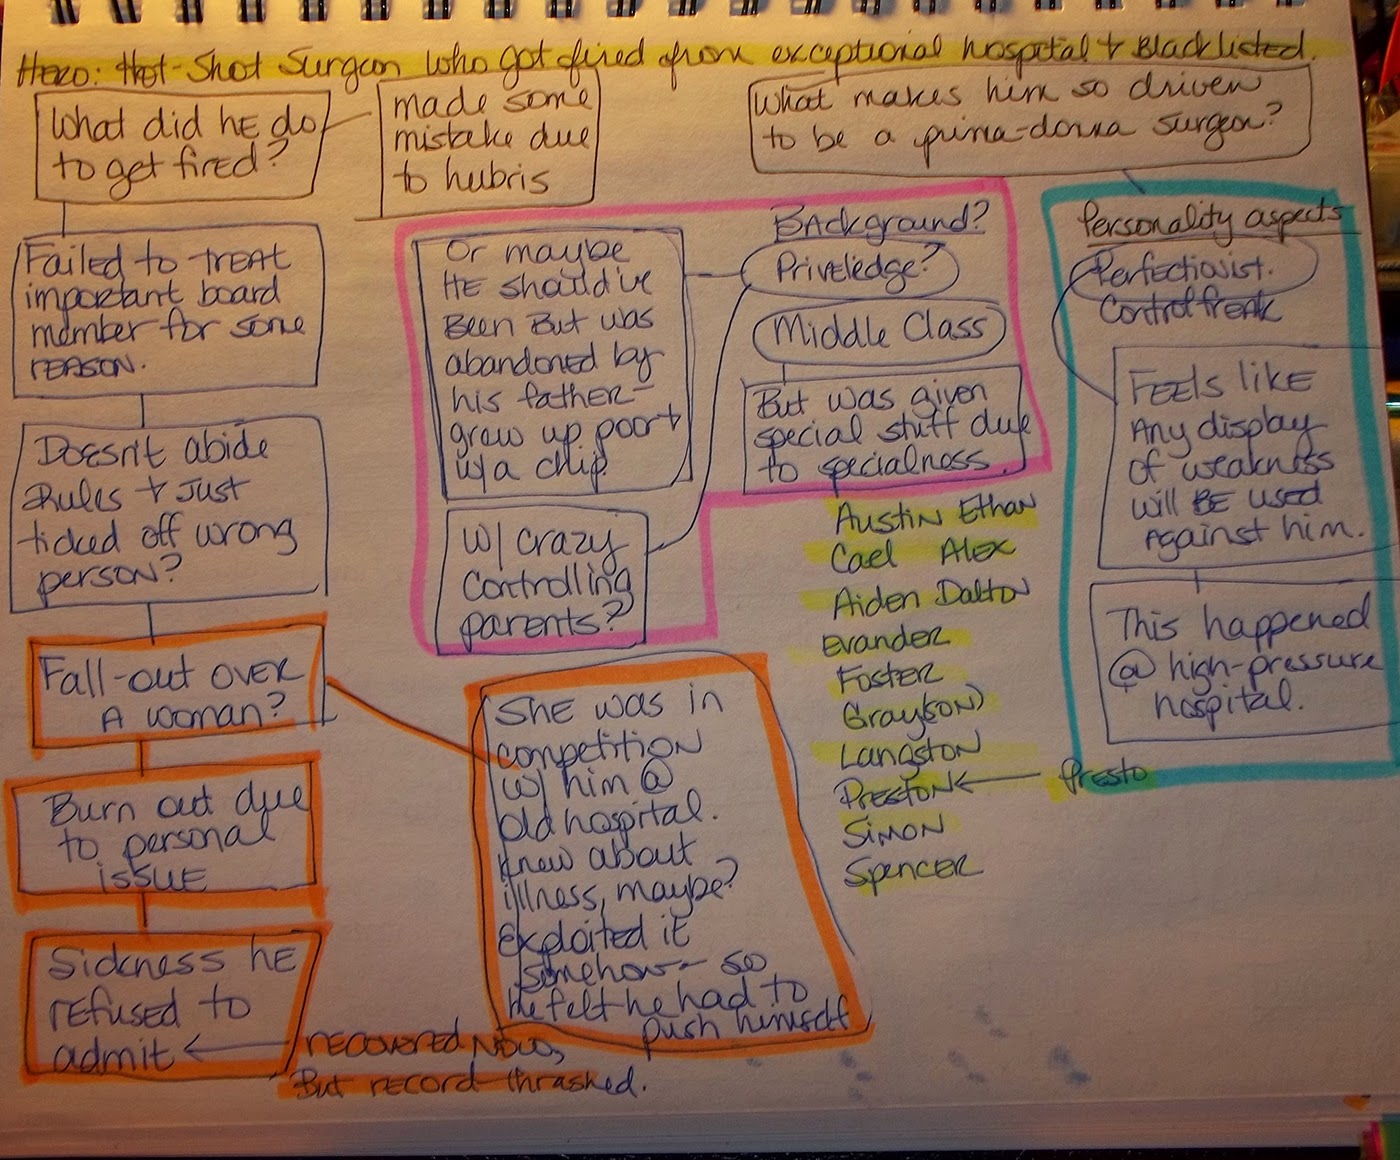 Hero: Hot-Shot Surgeon who got fired from exceptional hospital + Blacklisted.
What did HE do
to get fired?
made some
mistake due
to hubris
What makes him so driven
to be a prima-donna surgeon?
Failed to TREAT
important board
member for some
REASON.
Doesn't abide
Rules + Just
ticked off wrong
person?
Fall-out over
A woman?
Burn out due
to personal
issue
Sickness he
refused to
admit
recovered now,
But record thrashed.
She was in
competition
w/ him @
old hospital.
Knew about
illness, maybe?
Exploited it
somehow - so
he felt he had to
push himself
Background?
Priveledge?
Middle Class
But was given
special stuff due
to specialness.
Or maybe
HE should've
Been But was
abandoned by
his father -
grew up poor +
w/a chip.
w/ crazy
controlling
parents?
Personality aspects
Perfectionist.
Control freak
Feels like
Any display
of weakness
will BE used
Against him.
This happened
@ high-pressure
hospital.
Austin Ethan
Cael Alex
Aiden Dalton
Evander
Foster
Gray(son)
Langston
Preston
Presto
Simon
Spencer